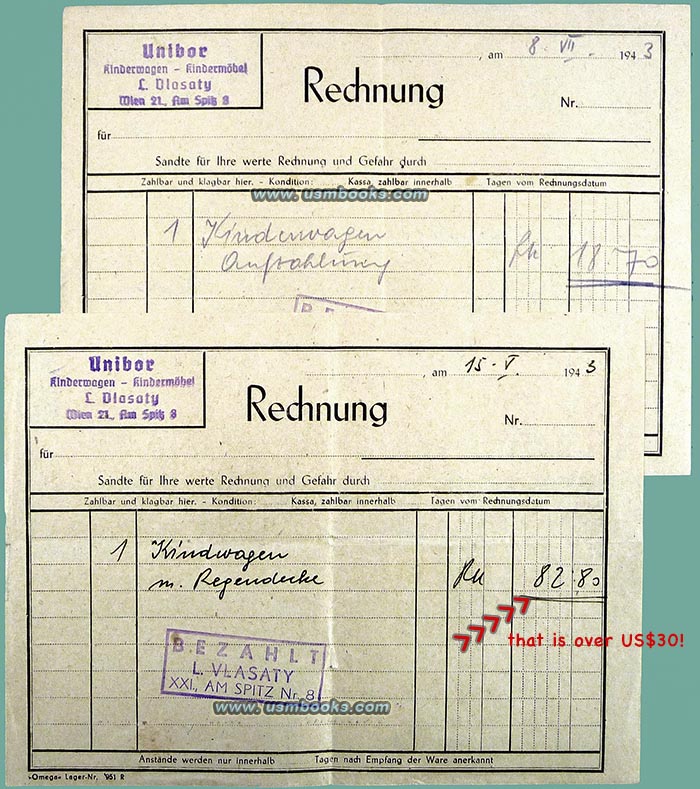 Unibor
Kinderwagen – Kindermöbel
L. Vlasaty
Wien 21., Am Spitz 8
, am 8. VII. 1943
Rechnung
Nr.
für
Sandte für Ihre werte Rechnung und Gefahr durch
Zahlbar und klagbar hier. - Kondition: Kassa, zahlbar innerhalb Tagen vom Rechnungsdatum
www.usmbooks.com
1 Kinderwagen
Aufzahlung
18 70
Unibor
Kinderwagen – Kindermöbel
L. Vlasaty
Wien 21., Am Spitz 8
, am 15. V. 1943
Rechnung
Nr.
für
Sandte für Ihre werte Rechnung und Gefahr durch
Zahlbar und klagbar hier. - Kondition: Kassa, zahlbar innerhalb Tagen vom Rechnungsdatum
1 Kindwagen
m. Regendecke
82.80
that is over US$30!
BEZAHLT
L. VLASATY
XXI., AM SPITZ Nr. 8
www.usmbooks.com
Anstände werden nur innerhalb Tagen nach Empfang der Ware anerkannt
"Omega" Lager-Nr. 951 R